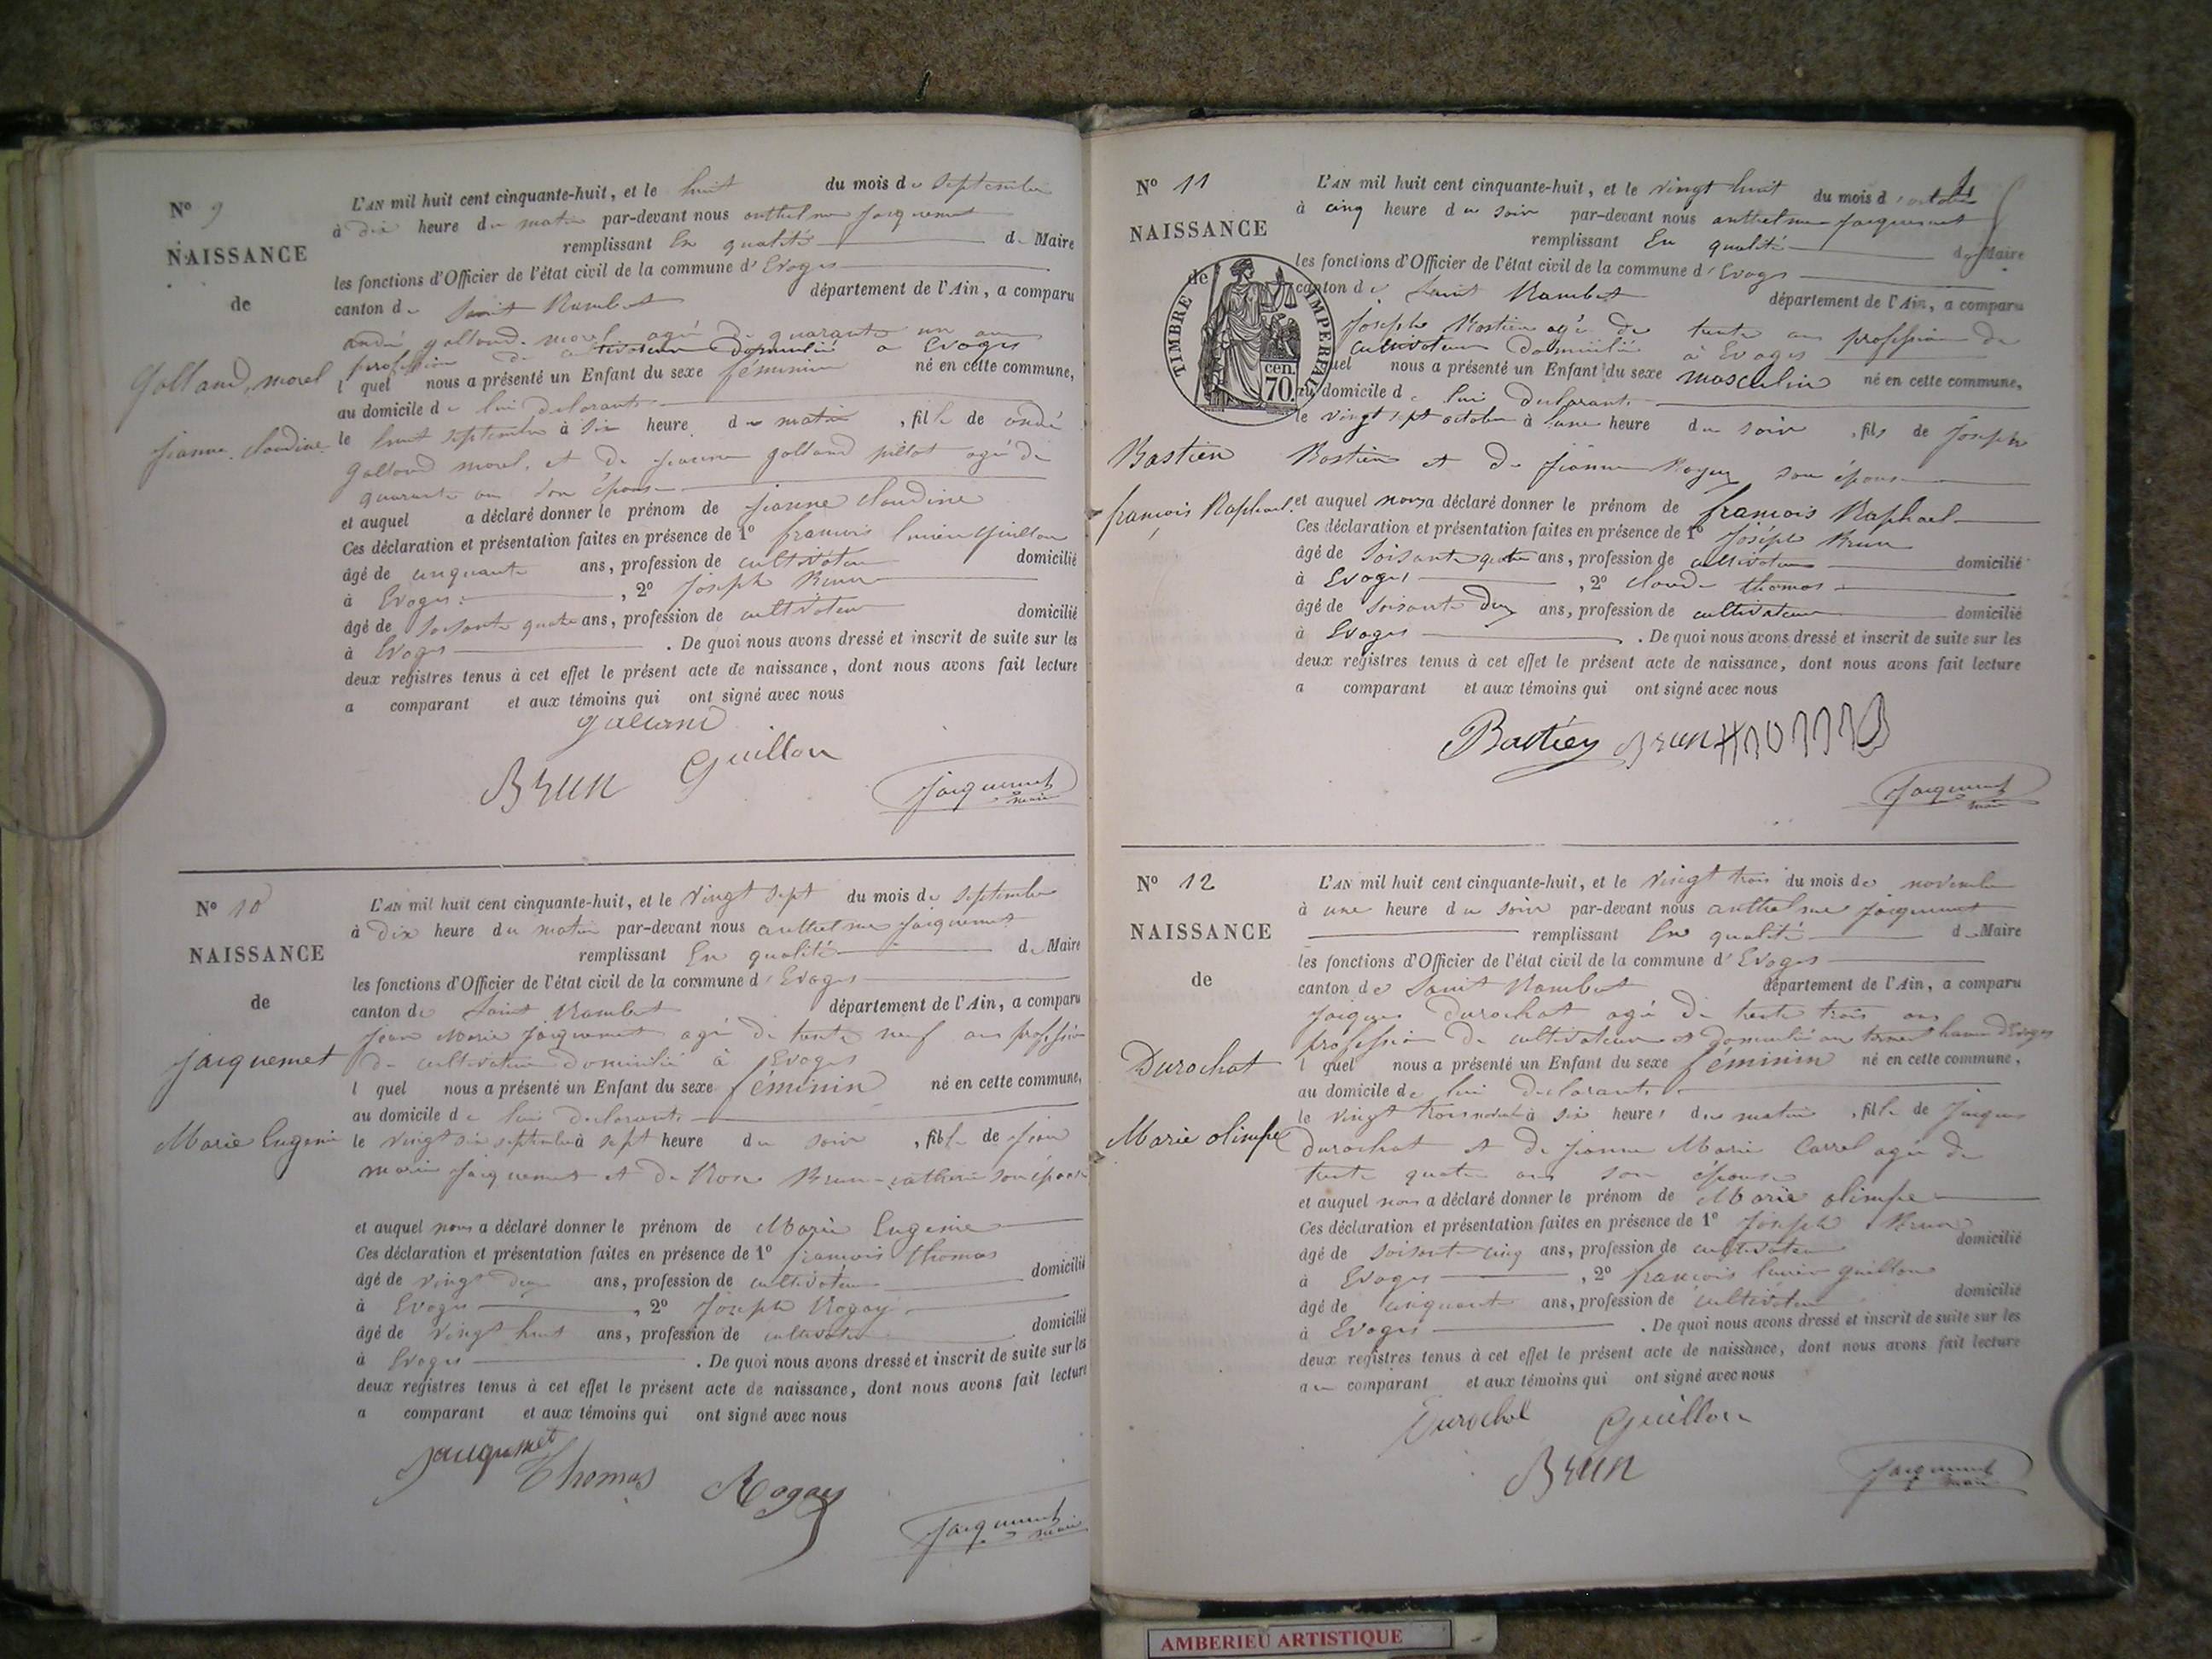 N° 9
NAISSANCE
de
Galland, morel
jeanne. Claudine
L'AN mil huit cent cinquante-huit, et le huit du mois de septembre
à dix heure du matin par-devant nous anthelme Jacquemet
remplissant En qualité de Maire
les fonctions d'Officier de l'état civil de la commune d'Evoges
canton de Saint Rambert département de l'Ain, a comparu
andré galland-morel agé de quarante un ans
profession de cultivateur domicilié a Evoges
l quel nous a présenté un Enfant du sexe féminin né en cette commune,
au domicile de lui declarant
le huit septembre à six heure du matin, fille de andé
galland morel, et de jeanne galland pillot agé de
quarante ans son épouse
et auquel a déclaré donner le prénom de jeanne claudine
Ces déclaration et présentation faites en présence de 1° francois lucien Guillon
âgé de cinquante ans, profession de cultivateur domicilié
à Evoges, 2° Joseph Brun
âgé de soisante quatre ans, profession de cultivateur domicilié
à Evoges. De quoi nous avons dressé et inscrit de suite sur les
deux registres tenus à cet effet le présent acte de naissance, dont nous avons fait lecture
a comparant et aux témoins qui ont signé avec nous
galland
Brun Guillon
Jacquemet
maire
N° 10
NAISSANCE
de
Jacquemet
Marie Eugenie
L'AN mil huit cent cinquante-huit, et le vingt sept du mois de septembre
à dix heure du matin par-devant nous anthelme Jacquemet
remplissant En qualité de Maire
les fonctions d'Officier de l'état civil de la commune d'Evoges
canton de Saint Rambert département de l'Ain, a comparu
Jean Marie Jacquemet agé de trente neuf ans profession
de cultivateur domicilié à Evoges
l quel nous a présenté un Enfant du sexe féminin né en cette commune,
au domicile de lui declarant
le vingt six septembre à sept heure du soir, fille de Jean
marie Jacquemet et de Rose Brun-catherin son épouse
et auquel nous a déclaré donner le prénom de Marie Eugenie
Ces déclaration et présentation faites en présence de 1° francois thomas
âgé de vingt deux ans, profession de cultivateur domicilié
à Evoges, 2° Joseph Rogay
âgé de vingt huit ans, profession de cultivateur domicilié
à Evoges. De quoi nous avons dressé et inscrit de suite sur les
deux registres tenus à cet effet le présent acte de naissance, dont nous avons fait lecture
a comparant et aux témoins qui ont signé avec nous
Jacquemet
Thomas Rogay
Jacquemet
maire
N° 11
NAISSANCE
de
TIMBRE IMPERIAL
70 cen.
Bastien
françois Raphael.
L'AN mil huit cent cinquante-huit, et le vingt huit du mois d'octobre
à cinq heure du soir par-devant nous anthelme Jacquemet
remplissant En qualité de Maire
les fonctions d'Officier de l'état civil de la commune d'Evoges
canton de Saint Rambert département de l'Ain, a comparu
Joseph Bastien agé de trente ans profession de
cultivateur domicilié à Evoges
quel nous a présenté un Enfant du sexe masculin né en cette commune,
au domicile de lui declarant
le vingt sept octobre à une heure du soir, fils de Joseph
Bastien et de jeanne son épouse
et auquel nous a déclaré donner le prénom de francois Raphael
Ces déclaration et présentation faites en présence de 1° Joséph Brun
âgé de soisante quatre ans, profession de cultivateur domicilié
à Evoges, 2° claude thomas
âgé de soisante dix ans, profession de cultivateur domicilié
à Evoges. De quoi nous avons dressé et inscrit de suite sur les
deux registres tenus à cet effet le présent acte de naissance, dont nous avons fait lecture
a comparant et aux témoins qui ont signé avec nous
Bastien Brun
Jacquemet
maire
N° 12
NAISSANCE
de
Durochat
Marie olimpe
L'AN mil huit cent cinquante-huit, et le vingt trois du mois de novembre
à une heure du soir par-devant nous anthelme Jacquemet
remplissant En qualité de Maire
les fonctions d'Officier de l'état civil de la commune d'Evoges
canton de Saint Rambert département de l'Ain, a comparu
Jacques Durochat agé de trente trois ans
profession de cultivateur et domicilié hameau d'Evoges
l quel nous a présenté un Enfant du sexe féminin né en cette commune,
au domicile de lui declarant
le vingt trois à six heures du matin, fille de Jacques
durochat et de jeanne Marie Carrel agée de
trente quatre ans son épouse
et auquel nous a déclaré donner le prénom de Marie olimpe
Ces déclaration et présentation faites en présence de 1° Joseph Brun
âgé de soisante cinq ans, profession de cultivateur domicilié
à Evoges, 2° francois lucien guillon
âgé de cinquante ans, profession de cultivateur domicilié
à Evoges. De quoi nous avons dressé et inscrit de suite sur les
deux registres tenus à cet effet le présent acte de naissance, dont nous avons fait lecture
au comparant et aux témoins qui ont signé avec nous
Durochat Guillon
Brun
Jacquemet
maire
AMBERIEU ARTISTIQUE